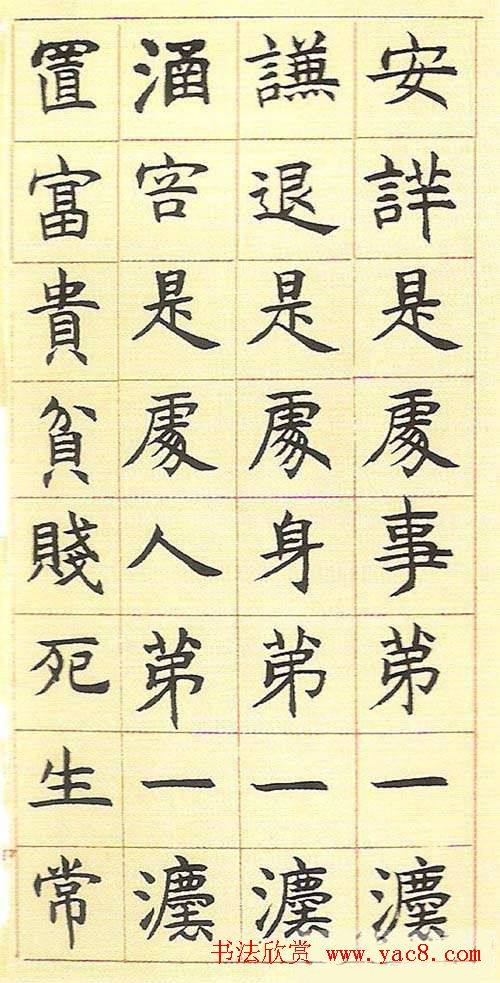 安詳是處事苐一灋
謙退是處身苐一灋
涵容是處人苐一灋
置富貴貧賤死生常
书法欣赏 www.yac8.com